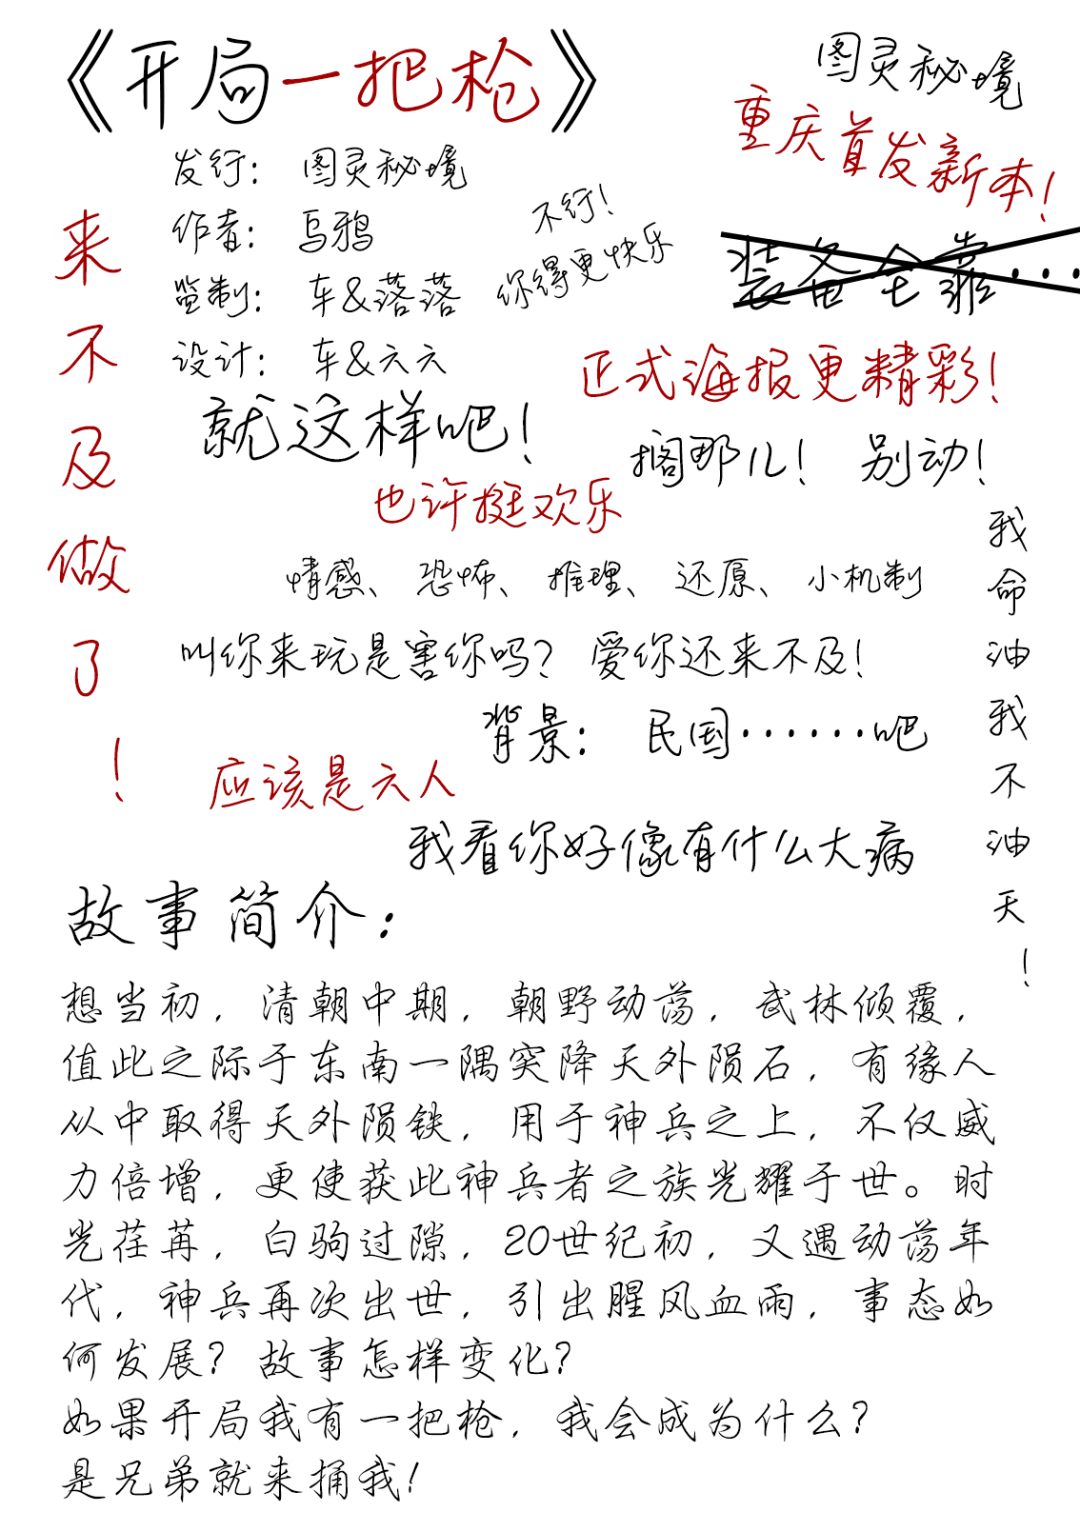 《开局一把枪》
图灵秘境
重庆首发新本！
发行： 图灵秘境
作者： 乌鸦
监制： 车&落落
设计： 车&六六
不行！
你得更快乐
装备全靠······
来不及做了！
正式海报更精彩！
就这样吧！
搁那儿！ 别动！
也许挺欢乐
我命油我不油天！
情感、恐怖、推理、还原、小机制
叫你来玩是害你吗？爱你还来不及！
背景： 民国······吧
应该是六人
我看你好像有什么大病
故事简介：
想当初，清朝中期，朝野动荡，武林倾覆，
值此之际于东南一隅突降天外陨石，有缘人
从中取得天外陨铁，用于神兵之上，不仅威
力倍增，更使获此神兵者之族光耀于世。时
光荏苒，白驹过隙，20世纪初，又遇动荡年
代，神兵再次出世，引出腥风血雨，事态如
何发展？故事怎样变化？
如果开局我有一把枪，我会成为什么？
是兄弟就来捅我！